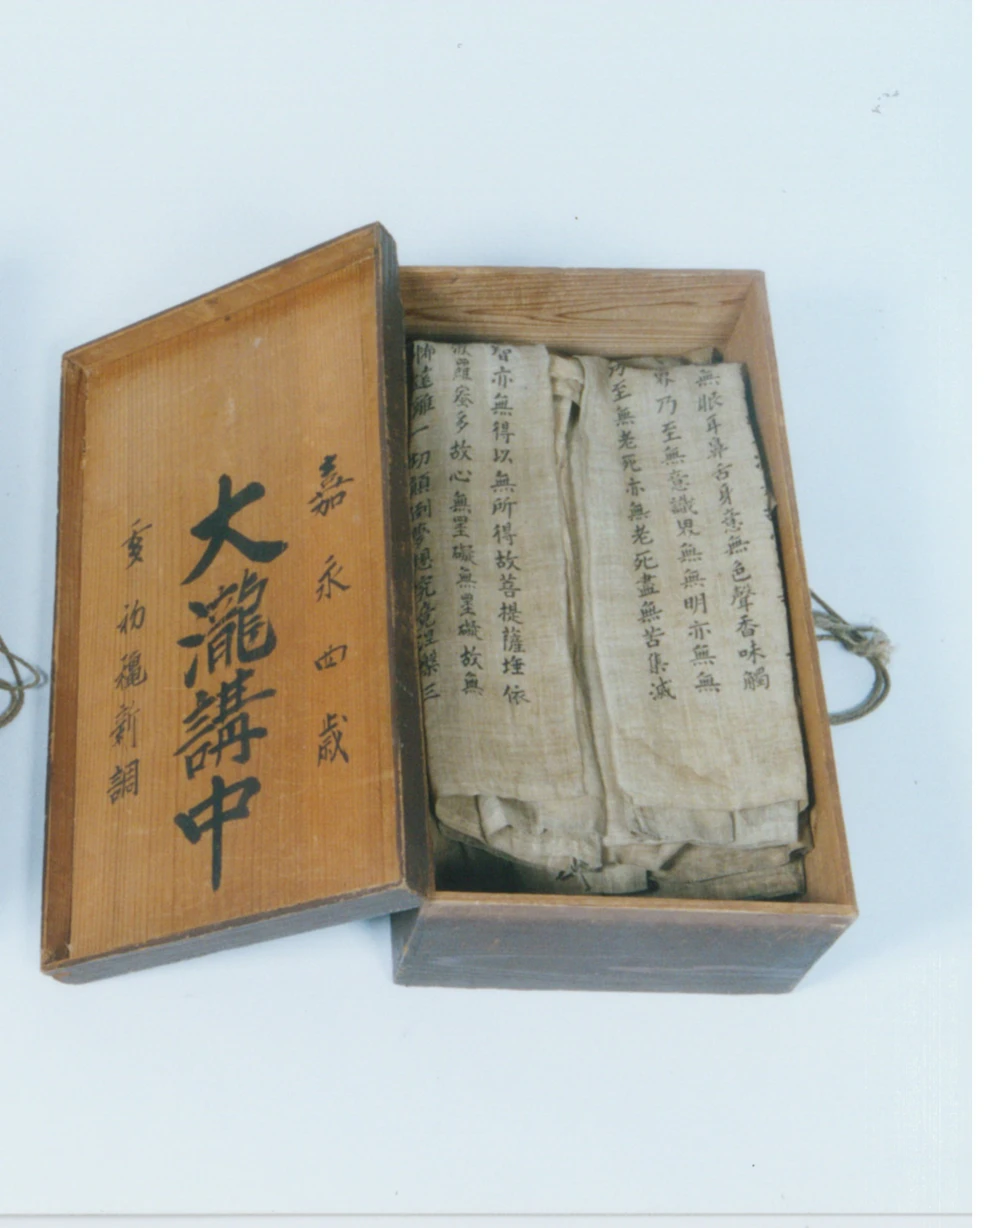 嘉永四歳
大瀧講中
亥初穐新調
無眼耳鼻舌身意無色聲香味觸
界乃至無意識界無無明亦無無
乃至無老死亦無老死盡無苦集滅
智亦無得以無所得故菩提薩埵依
般羅蜜多故心無罣礙無罣礙故無
怖遠離一切顛倒夢想究竟涅槃三